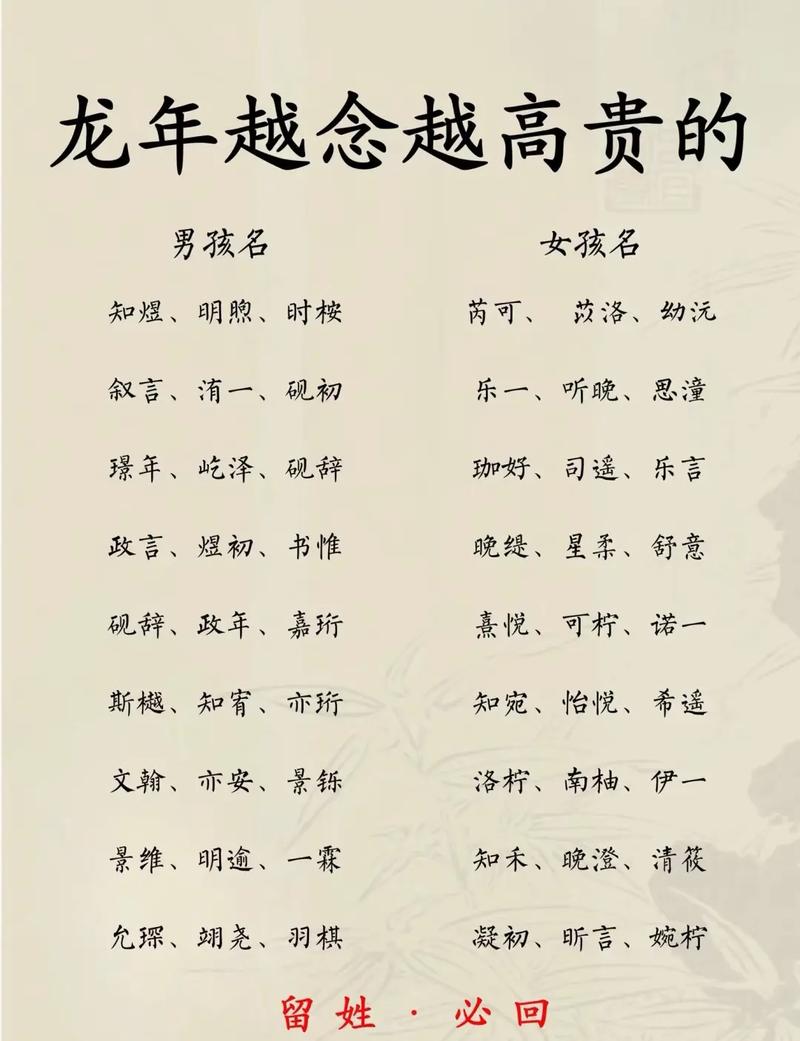 龙年越念越高贵的
男孩名 女孩名
知煜、明煦、时桉 芮可、苡洛、幼沅
叙言、洧一、砚初 乐一、听晚、思潼
璟年、屹泽、砚辞 珈好、司遥、乐言
政言、煜初、书惟 晚缇、星柔、舒意
砚辞、政年、嘉珩 熹悦、可柠、诺一
斯樾、知宥、亦珩 知宛、怡悦、希遥
文翰、亦安、景铄 洛柠、南柚、伊一
景维、明逾、一霖 知禾、晚澄、清筱
允琛、翊尧、羽棋 凝初、昕言、婉柠
留姓·必回